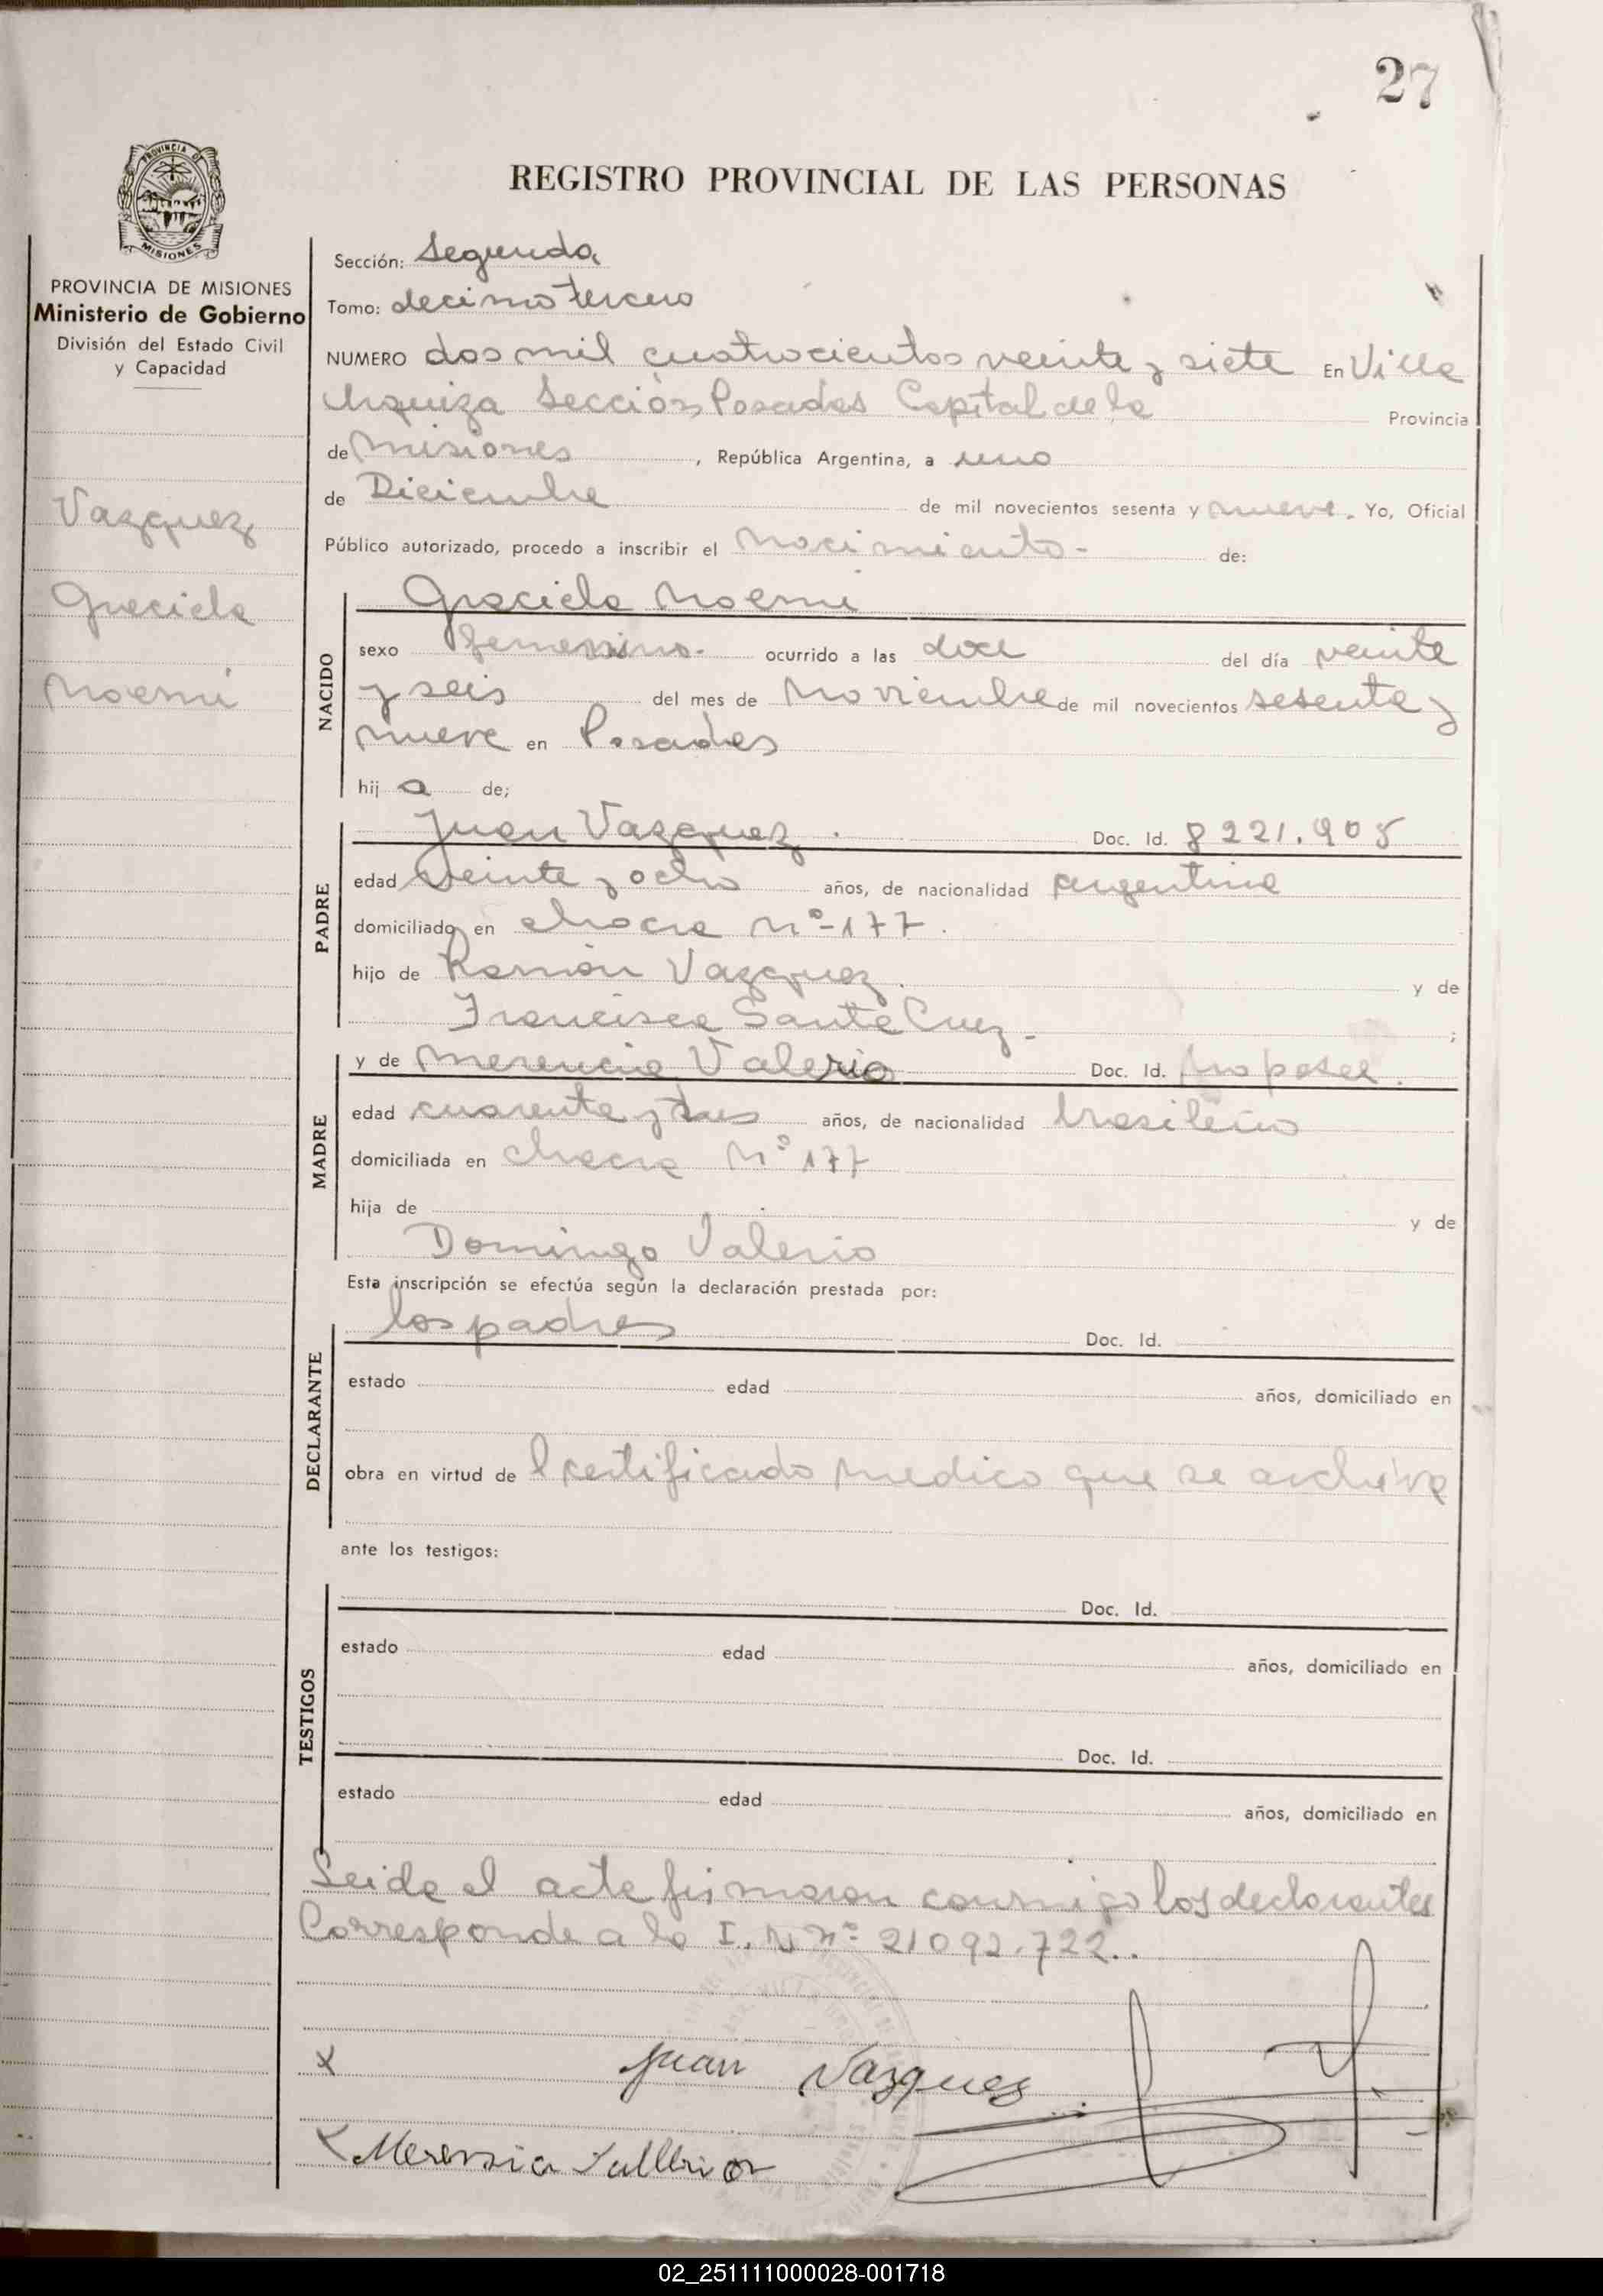 27
PROVINCIA DE
MISIONES
REGISTRO PROVINCIAL DE LAS PERSONAS
PROVINCIA DE MISIONES
Ministerio de Gobierno
División del Estado Civil
y Capacidad
Vazquez
Graciela
Noemi
Sección: Segunda
Tomo: decimo tercero
NUMERO dos mil cuatrocientos veinte y siete En Villa
Urquiza Sección Posadas Capital de la Provincia
de Misiones, República Argentina, a uno
de Diciembre de mil novecientos sesenta y nueve. Yo, Oficial
Público autorizado, procedo a inscribir el Nacimiento- de:
NACIDO
Graciela Noemi
sexo femenino- ocurrido a las doce del día veinte
y seis del mes de Noviembre de mil novecientos sesenta y
nueve en Posadas
hij a de;
PADRE
Juan Vazquez. Doc. Id. 8221.905
edad veinte y ocho años, de nacionalidad argentina
domiciliado en chacra Nº-177.
hijo de Ramón Vazquez. y de
Francisca Santa Cruz- ;
MADRE
y de Merencia Valerio Doc. Id. no posee.
edad cuarenta y tres años, de nacionalidad brasileña
domiciliada en chacra Nº 177
hija de y de
Domingo Valerio
Esta inscripción se efectúa según la declaración prestada por:
DECLARANTE
los padres Doc. Id.
estado edad años, domiciliado en
obra en virtud de l certificado medico que se archiva
ante los testigos:
TESTIGOS
Doc. Id.
estado edad años, domiciliado en
Doc. Id.
estado edad años, domiciliado en
Leida el acta firmaron conmigo los declarantes
Corresponde a la I. N nº 21092.722..
x Juan Vazquez
x Merensia
02_251111000028-001718